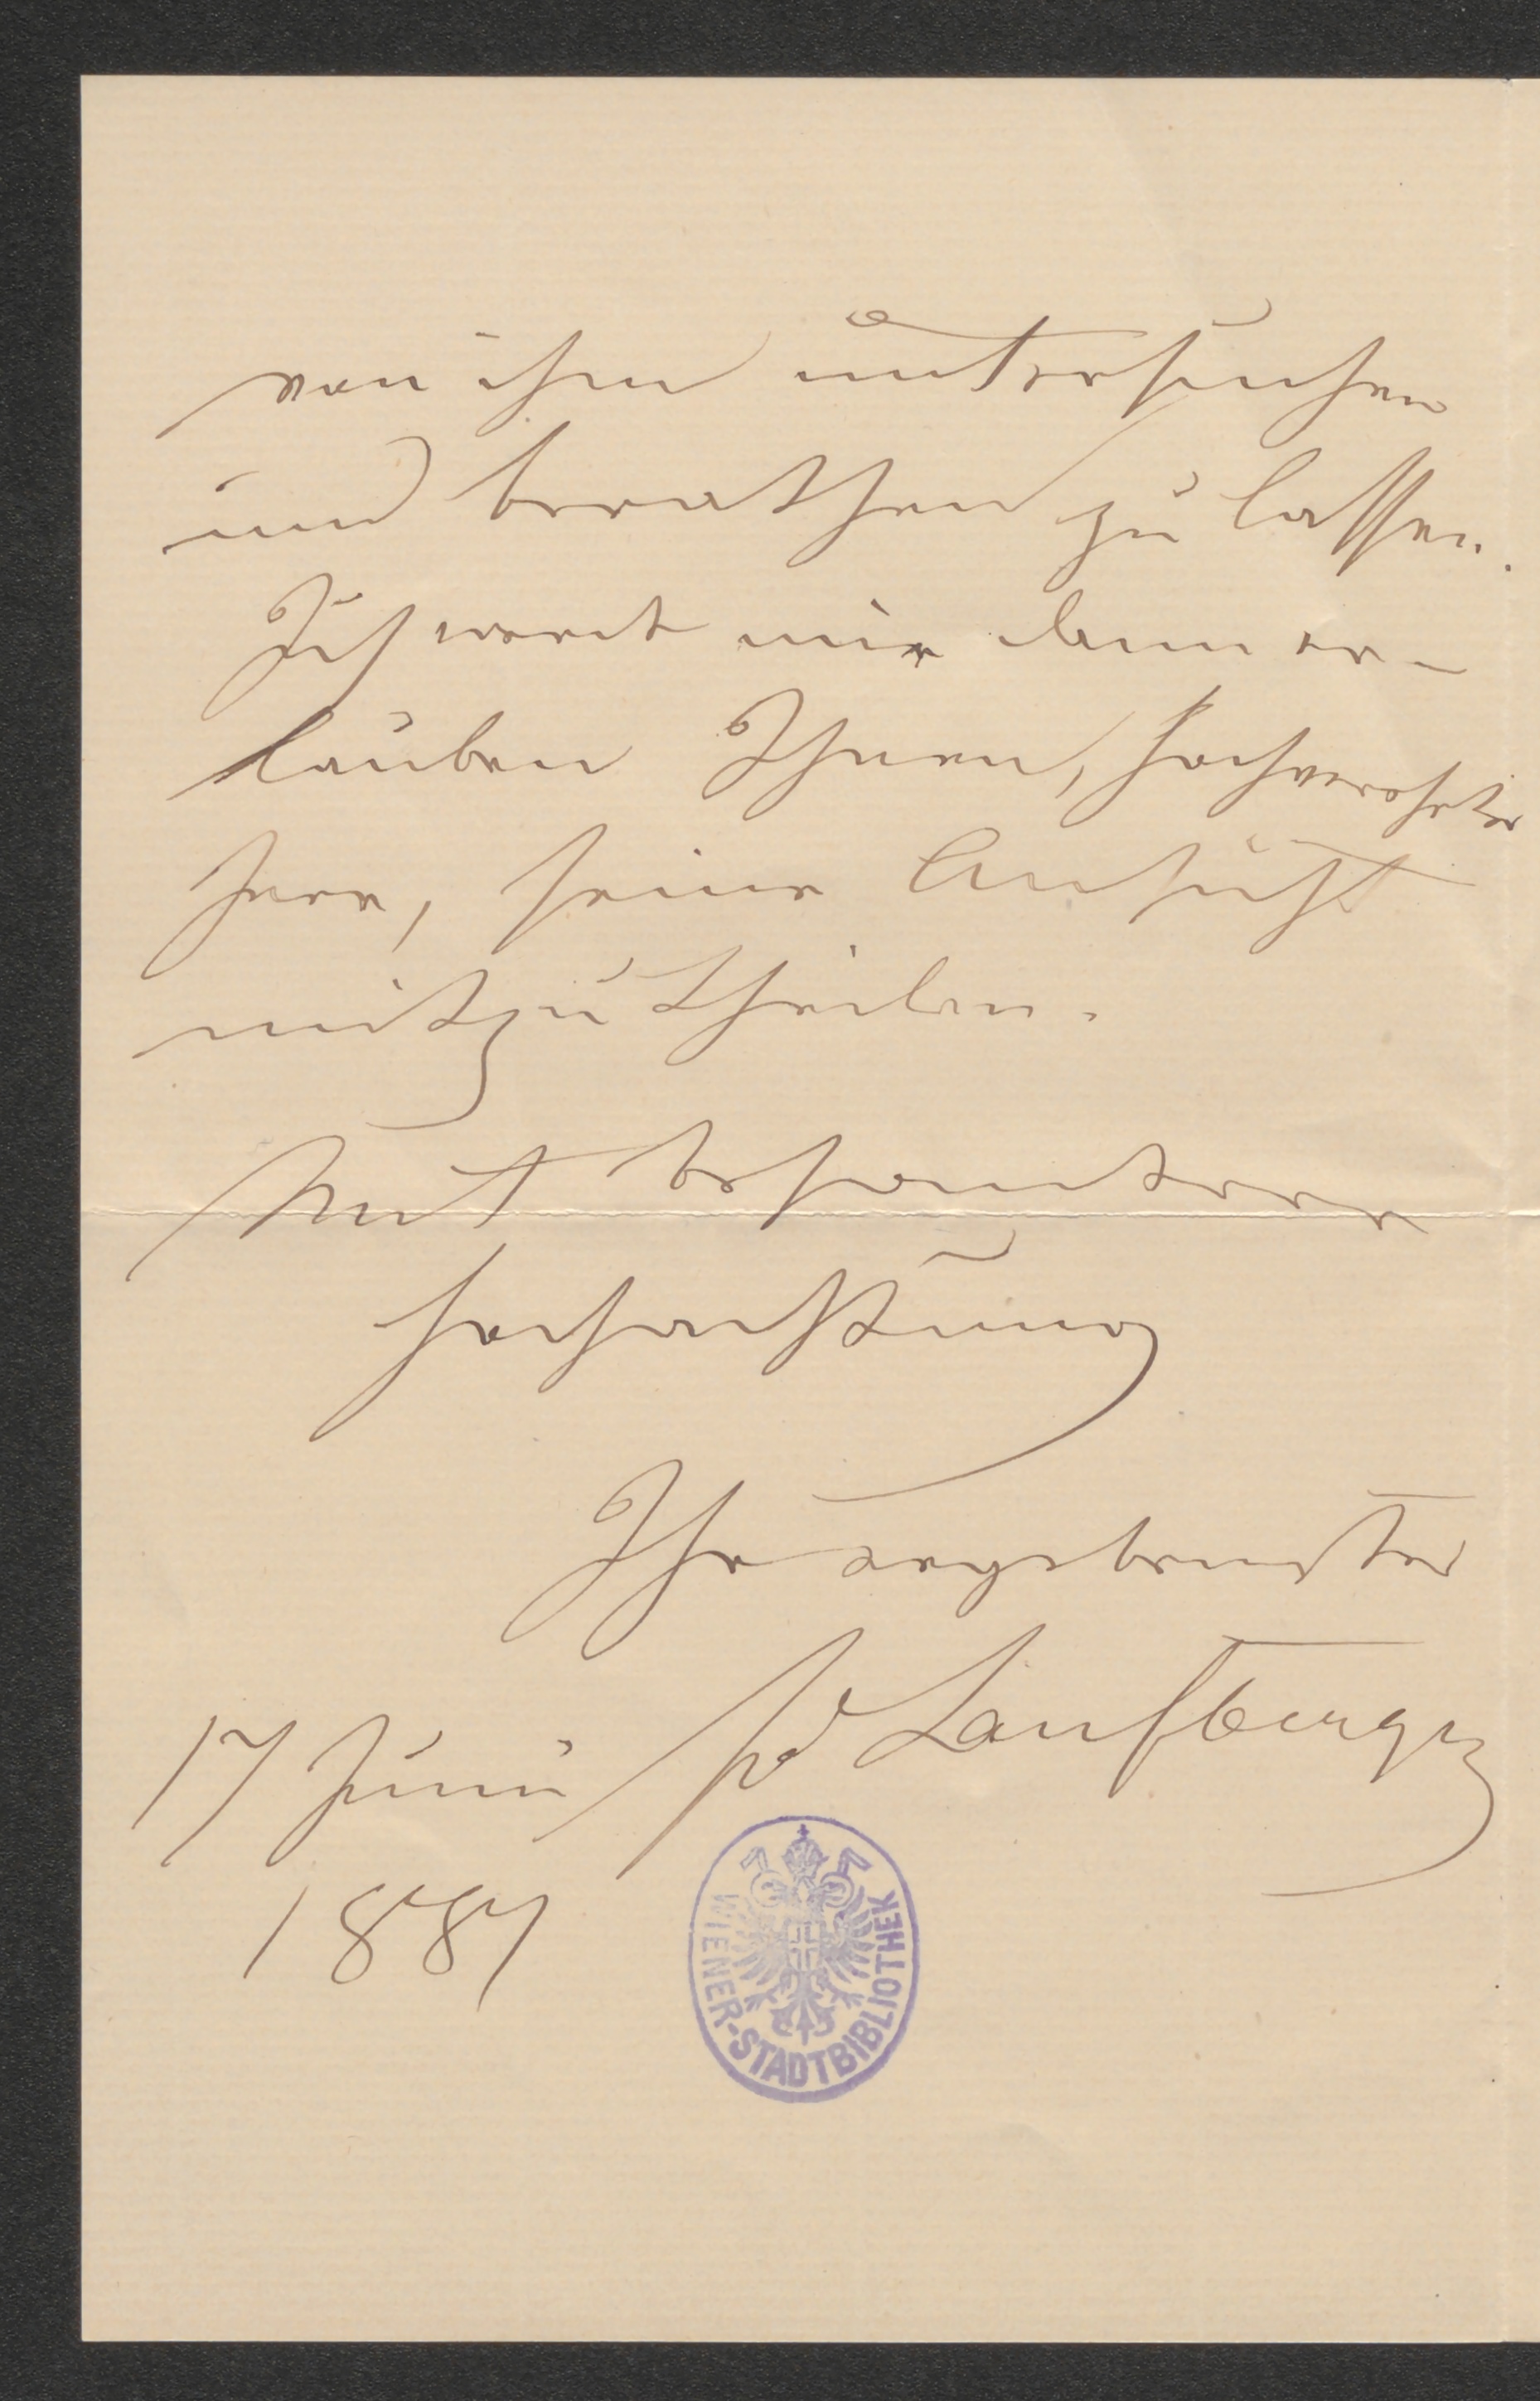 von ihm untersuchen
und berathen zu lassen.
Ich werde mir dann er-
lauben Ihnen, hochverehrter
Herr, seine Ansicht
mitzutheilen.
Mit besonderer
Hochachtung
Ihr ergebenster
17 Juni Fd Laufberger
1881
WIENER-STADTBIBLIOTHEK